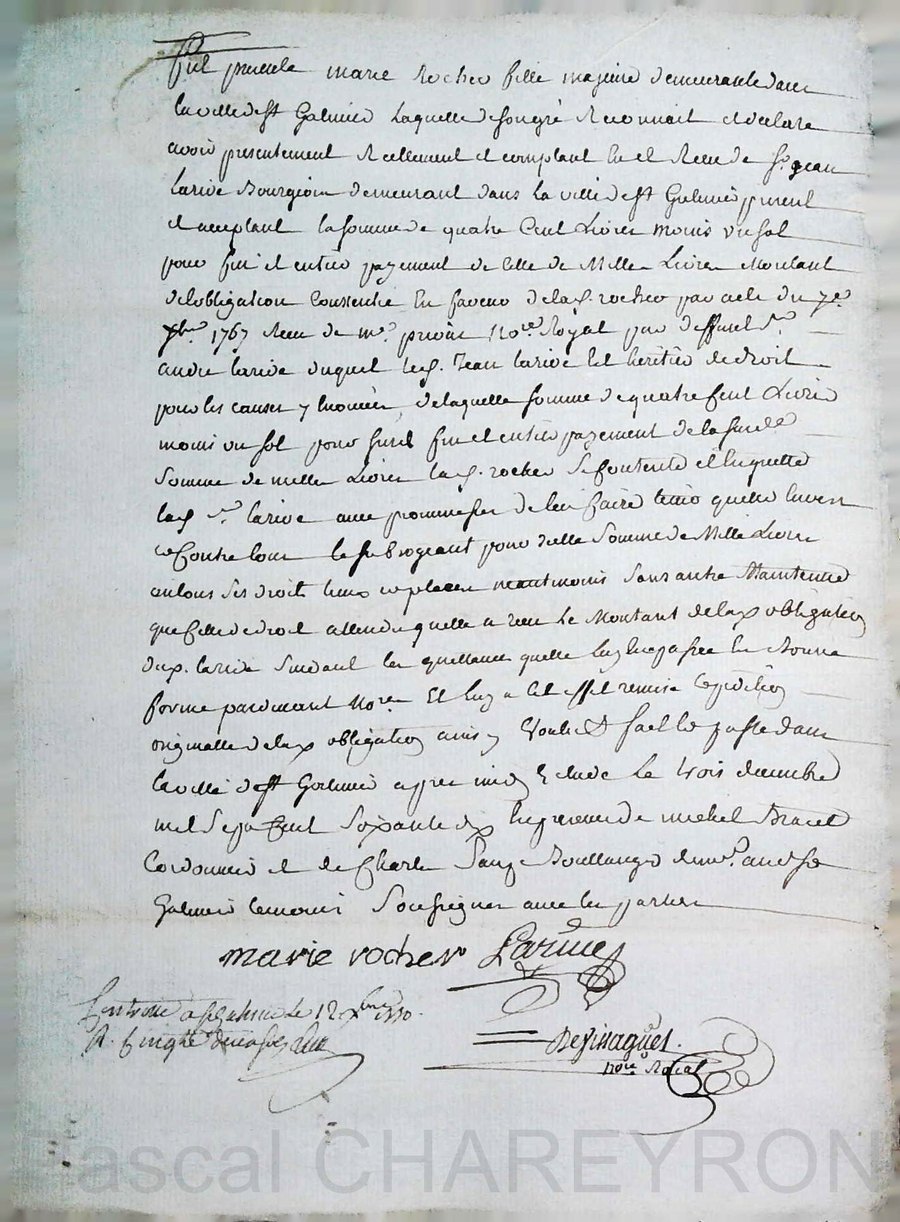 fut presente marie Rocher fille majeure demeurante dans
la ville de st Galmier Laquelle de son gré Reconnait et declare
avoir presentement Reellement et comptant eu et Receu de sr. jean
Larive Bourgeois demeurant dans La ville de st Galmier present
et acceptant la somme de quatre Cent Livres moins un sol
pour fin et entier payement de Celle de Mille Livres Montant
de lobligation Consentie En faveur de la d. rocher par acte du 7e
xbre 1767 Receu de me. notre Royal par deffunt sr.
andre larive duquel le d. Jean larive Est heritier de droit
pour les causes y Enoncées, de laquelle somme de quatre Cent Livres
moins un sol pour fin et entier payement de la susd.
Somme de mille Livres la d. rocher Se Contente et En quitte
le d. sr. larive avec promesse de len faire tenir quitte Envers
et Contre tous le subrogeant pour dicelle Somme de Mille Livres
en tous Ses droits lieux et places neantmoins Sans autre Maintenue
que Celle de droit attendu quelle a receu Le Montant de la d. obligation
du d. larive Suivant les quittances quelle luy En a passée En Bonne
forme pardevant Nore. Et luy a a Cet effet remise Lexpedition
originalle de la d. obligation ainsy Voulu fait et passé dans
la ville de st Galmier apres midy Etude Le trois decembre
mil Sept Cent Soixante dix En presence de michel
Cordonnier et de Charle Boullanger demt. aud. st
Galmier temoins Soussignes avec les parties
marie rocher Larive
Controllé a st galmier le 12 xbre 1770.
R. Cinq
nore Roial
Pascal CHAREYRON